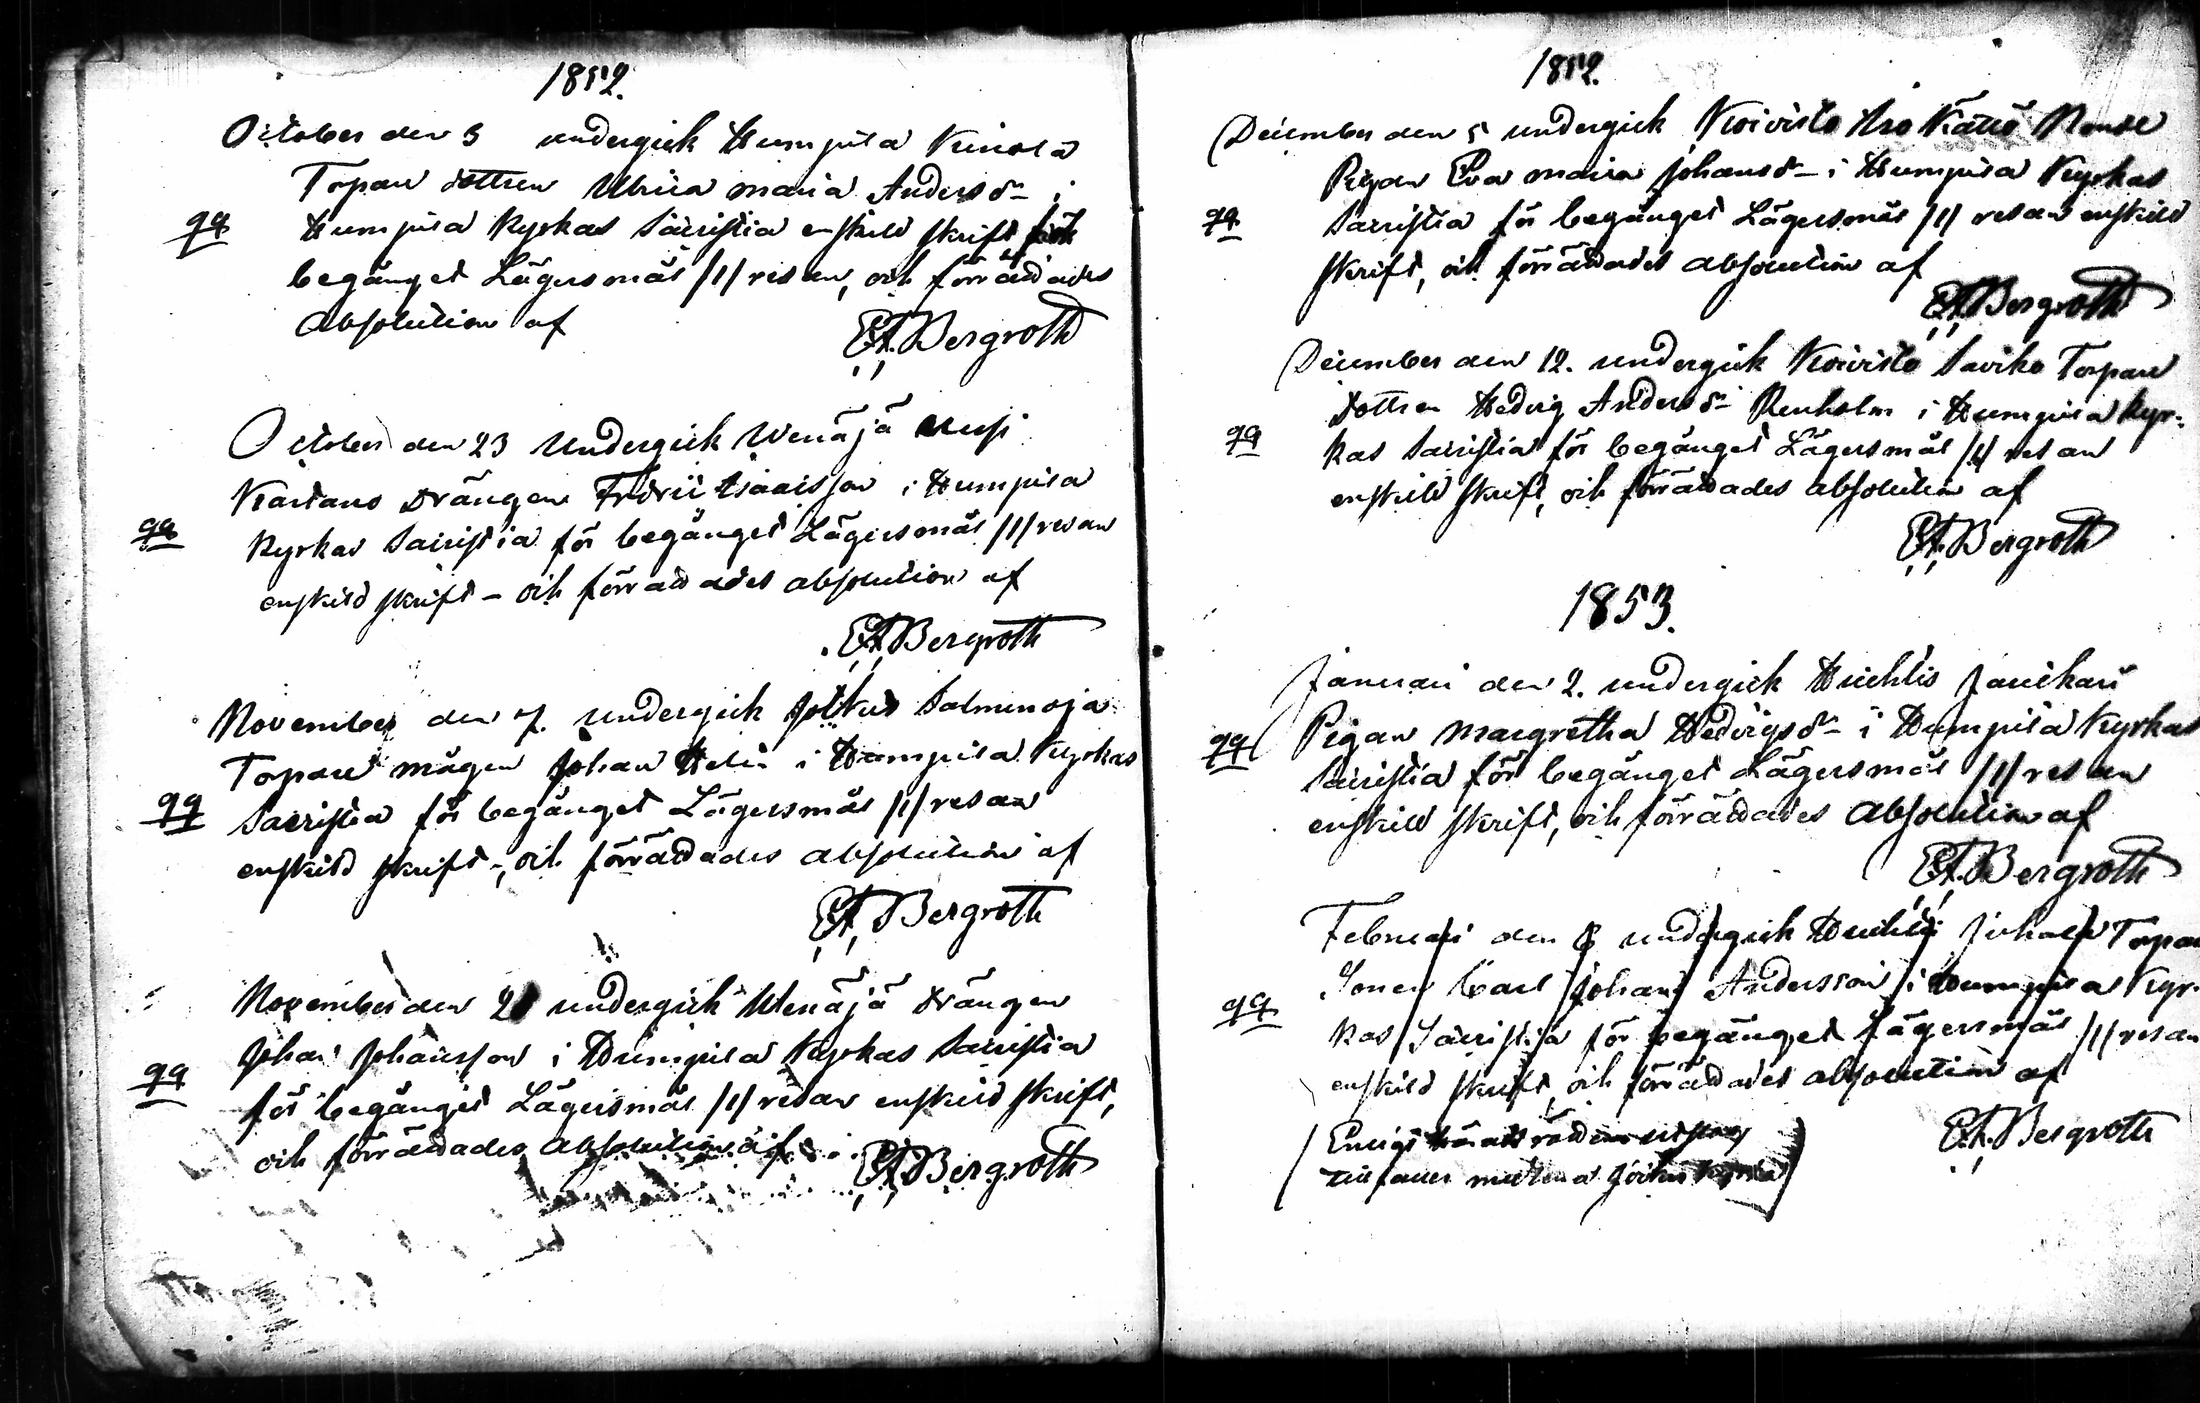 1852.
October den 3 undergick Humpila Kinola
Torpare dottren Ulrica Maria Andersdr i
qq
Humpila Kyrkas Sacristia enskild skrift för
begånget Lägersmål /1/ resan, och förrättades
Absolution af
EA Bergroth
October den 23 undergick Wenäjä Uusi
Kartano Drängen Fredric Isaacsson i Humpila
qq
Kyrkas Sacristia för begånget Lägersmål /1/ resan
enskild skrift – och förrättades absolution af
EA Bergroth
November den 7. undergick Salmenoja
Torpare mågen Johan Helin i Humpila Kyrkas
qq
Sacristia för begånget Lägersmål /1/ resan
enskild skrift –, och förrättades absolution af
EA Bergroth
November den undergick Wenäjä Drängen
Johan Johansson i Humpila Kyrkas Sacristia
qq
för begånget Lägersmål /1/ resan enskild skrift,
och förrättades absolution af
EA Bergroth
1852.
December den 5 undergick Koivisto
Pigan Eva Maria Johansdr i Humpila Kyrkas
qq
Sacristia för begånget Lägersmål /1/ resan enskild
skrift, och förrättades absolution af
EA Bergroth
December den 12. undergick Koivisto Saviko Torpare
Dottren Hedvig Andersdr Renholm i Humpila Kyr-
qq
kas Sacristia för begånget Lägersmål /1/ resan
enskild skrift, och förrättades absolution af
EA Bergroth
1853.
Januari den 2. undergick Huhtis
qq
Pigan Margretha Hedvigsdr i Humpila Kyrkas
Sacristia för begånget Lägersmål /1/ resan
enskild skrift, och förrättades Absolution af
EA Bergroth
Februari den 6 undergick Torpare
Sonen Carl Johan Andersson i Humpila Kyr-
qq
kas Sacristia för begånget Lägersmål /1/ resan
enskild skrift, och förrättades absolution af
EA Bergroth
Enligt